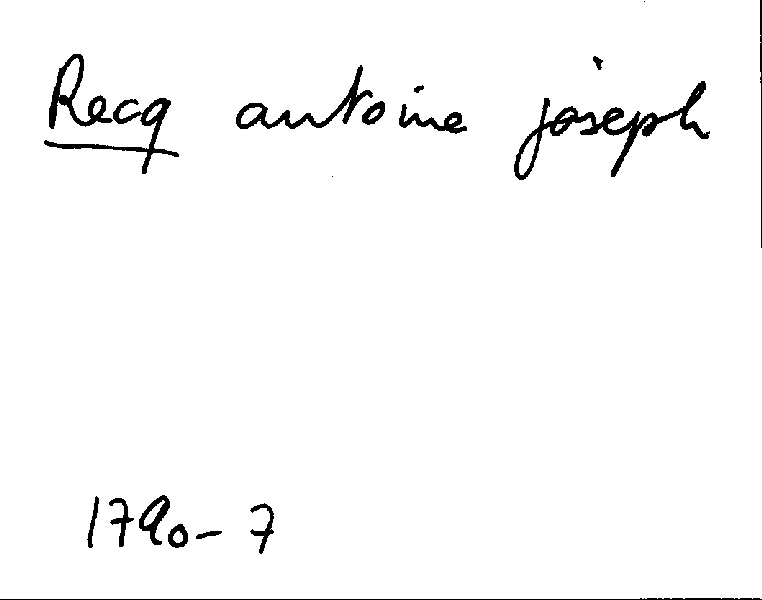 Recq antoine joseph
1790-7